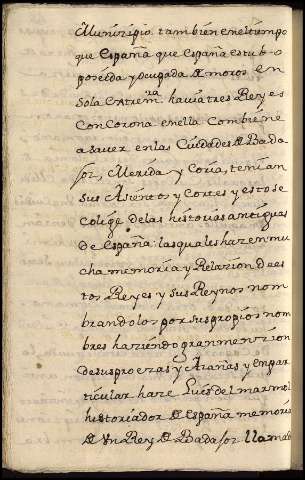 Muniçipio. tambien enel tiempo
que España que España estubo
poseida y ocupada de moros en
Sola extrem.ra havia tres Reyes
Con Corona en ella Combiene
a saver en las Ciudades de Bada
joz, Merida y Coria, tenian
sus Asientos y Cortes y esto se
colige delas historias antiguas
de España. las quales hazen mu
cha memoria y Relazion de es
tos Reyes y sus Reynos nom
brandolos por sus propios nom
bres haziendo gran menzion
de sus proezas y Azañas y en par
ticular haze Luis del marmol
historiador de España memoria
de Un Rey de Badajoz llamado